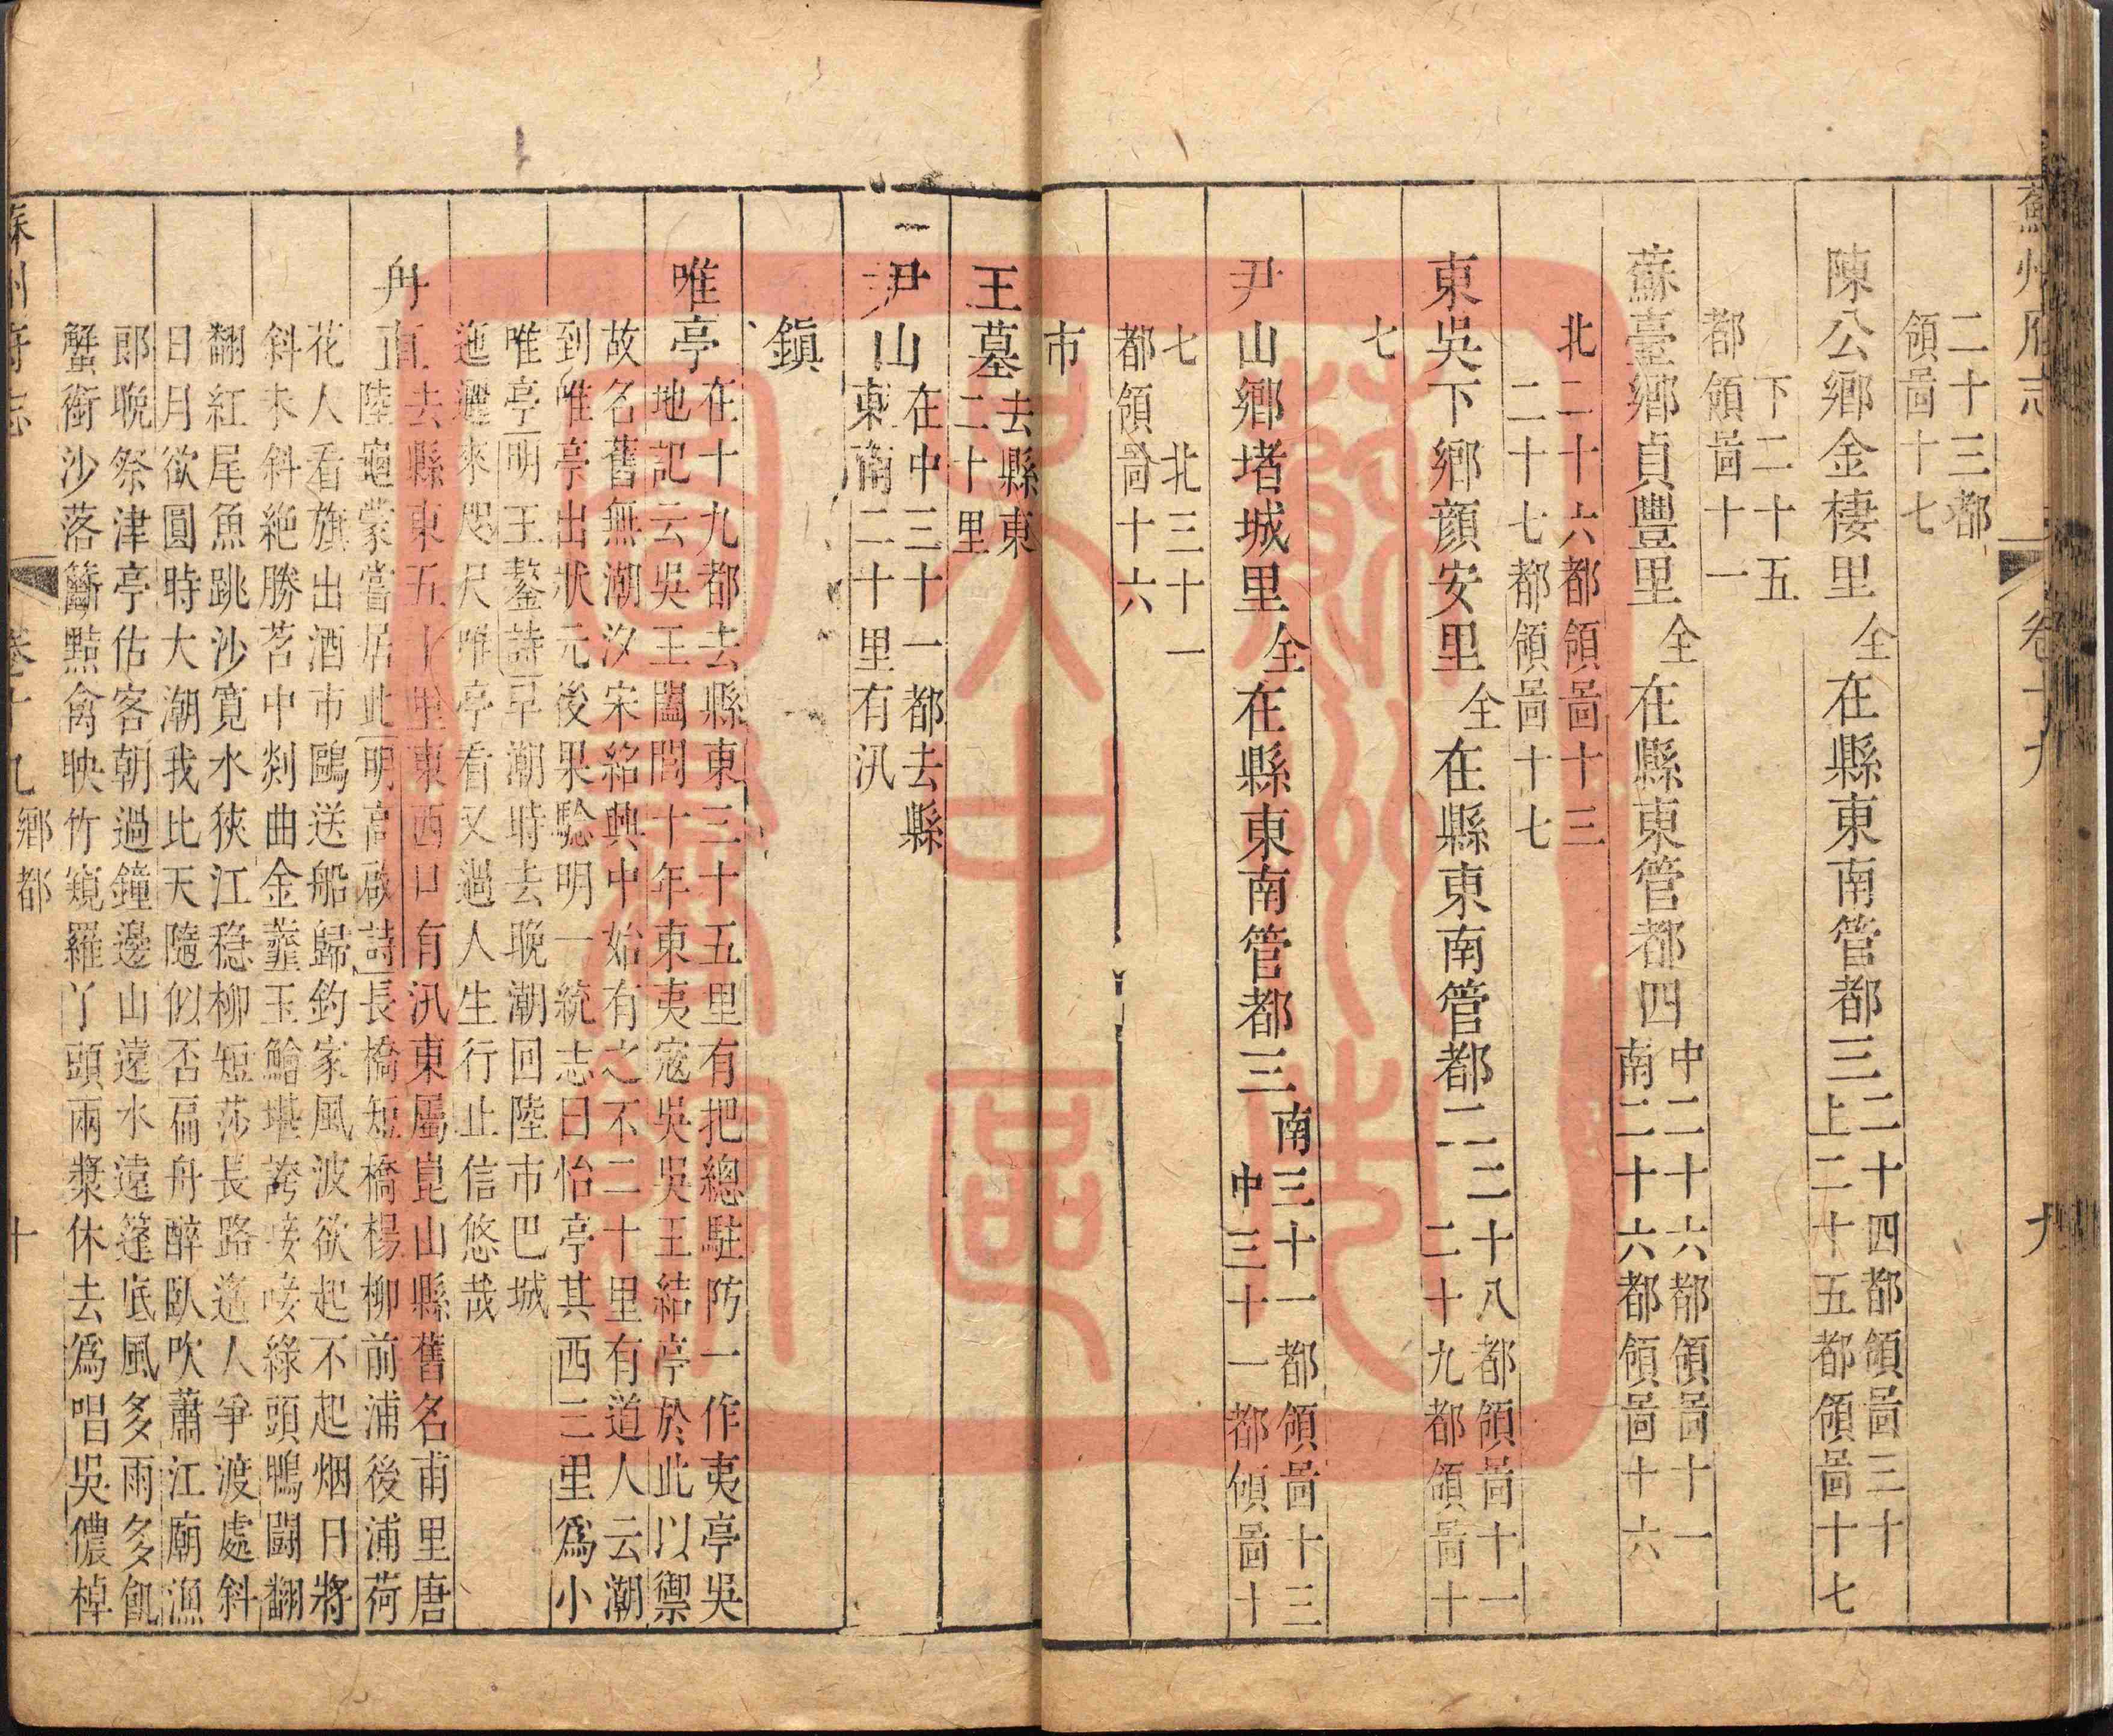 蘇州府志 卷十九 九
二十三都
領啚十七
陳公鄉金棲里全在縣東南管都三二十四都領啚三十
上二十五都領啚十七
下二十五
都領啚十一
蘇臺鄉貞豐里全在縣東管都四中二十六都領啚十一
南二十六都領啚十六
北二十六都領啚十三
二十七都領啚十七
東吳下鄉顔安里全在縣東南管都二二十八都領啚十一
二十九都領啚十
七
尹山鄉堵城里全在縣東南管都三南三十一都領啚十三
中三十一都領啚十
七 北三十一
都領啚十六
市
王墓去縣東
二十里
尹山在中三十一都去縣
東南二十里有汛
鎮
唯亭在十九都去縣東三十五里有把總駐防一作夷亭吳
地記云吳王闔閭十年東夷寇吳吳王結亭於此以禦
故名舊無潮汐宋紹興中始有之不二十里有道人云潮
到唯亭出狀元後果驗明一統志曰怡亭其西三里為小
唯亭明王鏊詩早潮時去晚潮回陸市巴城
迤邐來咫尺唯亭看又過人生行止信悠哉
甪直去縣東五十里東西口有汛東屬崑山縣舊名甫里唐
陸龜蒙嘗居此明高啟詩長橋短橋楊柳前浦後浦荷
花人看旗出酒市鷗送船歸釣家風波欲起不起烟日將
斜未斜絶勝苕中剡曲金虀玉鱠堪誇唼唼綠頭鴨鬪翻
翻紅尾魚跳沙寛水狹江穏柳短莎長路遙人爭渡處斜
日月欲圓時大潮我比天隨似否扁舟醉臥吹蕭江廟漁
郎晚祭津亭估客朝過鐘邊山遠水遠篷底風多雨多飢
蟹銜沙落籪黠禽映竹窺羅丫頭兩槳休去爲唱吳儂棹
蘇州府志 卷十九 鄉都 十
蘇州市立圖書館藏